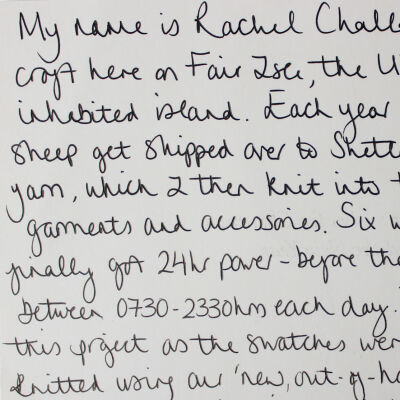 My name is Rachel Chall
croft here on Fair Isle, the U
inhabited island. Each year
sheep get shipped over to Shetl
yarn, which I then knit into t
garments and accessories. Six w
finally got 24hr power - before tha
between 0730-2330hrs each day.
this project as the swatches wer
knitted using our 'new, out-of-ho